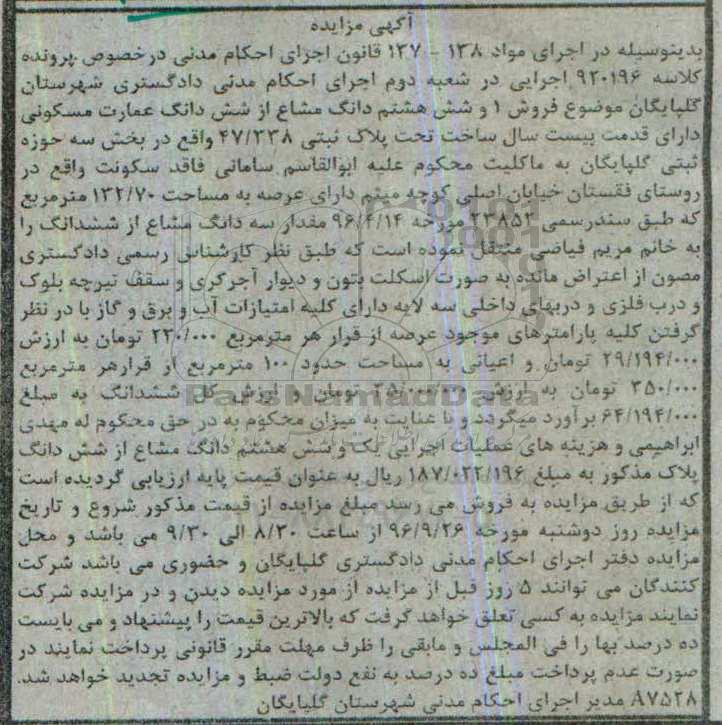 آگهی مزایده
بدینوسیله در اجرای مواد ۱۳۸ - ۱۳۷ قانون اجرای احکام مدنی درخصوص پرونده
کلاسه ۹۲۰۱۹۶ اجرایی در شعبه دوم اجرای احکام مدنی دادگستری شهرستان
گلپایگان موضوع فروش ۱ و شش هشتم دانگ مشاع از شش دانگ عمارت مسکونی
دارای قدمت بیست سال ساخت تحت پلاک ثبتی ۴۷/۲۳۸ واقع در بخش سه حوزه
ثبتی گلپایگان به مالکیت محکوم علیه ابوالقاسم سامانی فاقد سکونت واقع در
روستای فقستان خیابان اصلی کوچه میثم دارای عرصه به مساحت ۱۳۲/۷۰ مترمربع
که طبق سندرسمی ۲۳۸۵۲ مورخه ۹۶/۴/۱۴ مقدار سه دانگ مشاع از ششدانگ را
به خانم مریم فیاضی منتقل نموده است که طبق نظر کارشناس رسمی دادگستری
مصون از اعتراض مانده به صورت اسکلت بتون و دیوار آجرکری و سقف تیرچه بلوک
و درب فلزی و دربهای داخلی سه لایه دارای کلیه امتیازات آب و برق و گاز با در نظر
گرفتن کلیه پارامترهای موجود عرصه از قرار هر مترمربع ۲۲۰/۰۰۰ تومان به ارزش
۲۹/۱۹۴/۰۰۰ تومان و اعیانی به مساحت حدود ۱۰۰ مترمربع از قرارهر مترمربع
۳۵۰/۰۰۰ تومان به ارزش ۳۵/۰۰۰/۰۰۰ تومان و ارزش کل ششدانگ به مبلغ
۶۴/۱۹۴/۰۰۰ برآورد میگردد و با عنایت به میزان محکوم به در حق محکوم له مهدی
ابراهیمی و هزینه های عملیات اجرایی یک و شش هشتم دانگ مشاع از شش دانگ
پلاک مذکور به مبلغ ۱۸۷/۰۲۲/۱۹۶ ریال به عنوان قیمت پایه ارزیابی گردیده است
که از طریق مزایده به فروش می رسد مبلغ مزایده از قیمت مذکور شروع و تاریخ
مزایده روز دوشنبه مورخه ۹۶/۹/۲۶ از ساعت ۸/۳۰ الی ۹/۳۰ می باشد و محل
مزایده دفتر اجرای احکام مدنی دادگستری گلپایگان و حضوری می باشد شرکت
کنندگان می توانند ۵ روز قبل از مزایده از مورد مزایده دیدن و در مزایده شرکت
نمایند مزایده به کسی تعلق خواهد گرفت که بالاترین قیمت را پیشنهاد و می بایست
ده درصد بها را فی المجلس و مابقی را ظرف مهلت مقرر قانونی پرداخت نمایند در
صورت عدم پرداخت مبلغ ده درصد به نفع دولت ضبط و مزایده تجدید خواهد شد.
۸۷۵۲۸ مدیر اجرای احکام مدنی شهرستان گلپایگان
ParsNamadData